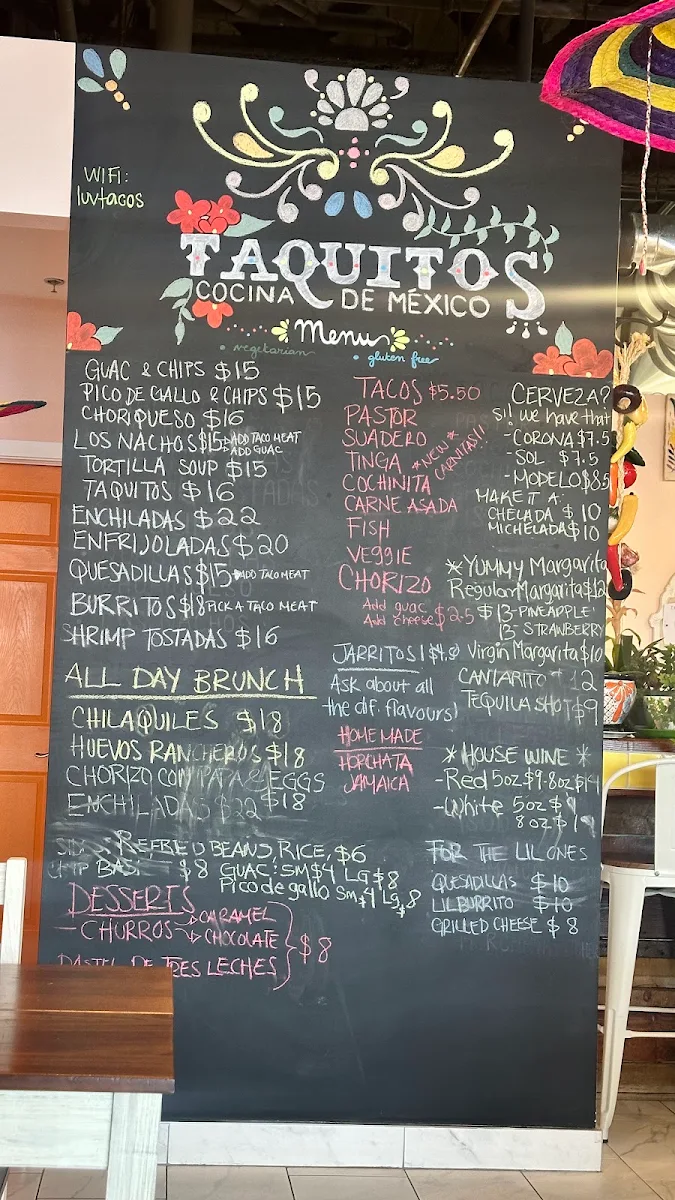 WIFI:
luvtacos
TAQUITOS
COCINA DE MÉXICO
Menu
• vegetarian
• gluten free
GUAC & CHIPS $15
PICO DE GALLO & CHIPS $15
CHORIQUESO $16
LOS NACHOS $15 ADD TACO MEAT
ADD GUAC
TORTILLA SOUP $15
TAQUITOS $16
ENCHILADAS $22
ENFRIJOLADAS $20
QUESADILLAS $15 ADD TACO MEAT
BURRITOS $18 PICK A TACO MEAT
SHRIMP TOSTADAS $16
ALL DAY BRUNCH
CHILAQUILES $18
HUEVOS RANCHEROS $18
CHORIZO CON PAPA & EGGS
$18
ENCHILADAS $22
REFRIED BEANS, RICE, $6
CHIP BAS $8 GUAC: SM $4 LG $8
Pico de gallo Sm $4 Lg $8
DESSERTS
- CHURROS CARAMEL
CHOCOLATE $8
PASTEL DE TRES LECHES
TACOS $5.50
PASTOR
SUADERO
TINGA *NEW* CARNITAS!!
COCHINITA
CARNE ASADA
FISH
VEGGIE
CHORIZO
Add guac
Add cheese $2.5
JARRITOS
Ask about all
the dif. flavours!
HOME MADE
HORCHATA
JAMAICA
CERVEZA?
Si!! we have that
- CORONA $7.5
- SOL $7.5
- MODELO $8.5
MAKE IT A:
CHELADA $10
MICHELADA $10
*YUMMY Margarita
Regular Margarita $12
$13 - PINEAPPLE
13 STRAWBERRY
Virgin Margarita $10
CANTARITO 12
TEQUILA SHOT $9
* HOUSE WINE *
- Red 5oz $9 - 8oz $14
- White 5oz $9
8oz
FOR THE LIL ONES
QUESADILLAS $10
LIL BURRITO $10
GRILLED CHEESE $8